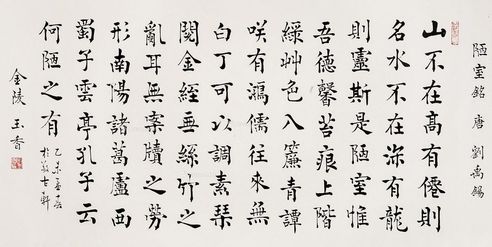 陋室銘 唐 劉禹錫
山不在高有僊則
名水不在深有龍
則靈斯是陋室惟
吾德馨苔痕上階
綠艸色入簾青譚
咲有鴻儒往來無
白丁可以調素琴
閱金經無絲竹之
亂耳無案牘之勞
形南陽諸葛廬西
蜀子雲亭孔子云
何陋之有
乙未孟
金陵 玉香